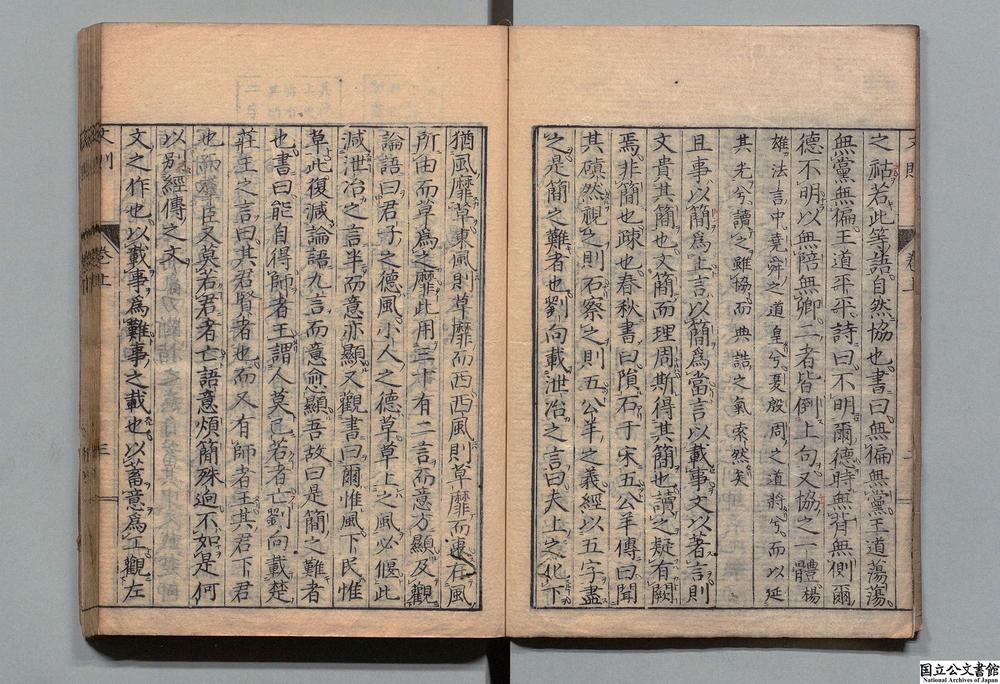 之祜若此等語自然協也書曰無徧無黨王道蕩蕩
無黨無徧王道平平詩曰不明爾德時無背無側爾
德不明以無陪無卿二者皆倒上句又協之一體楊
雄法言中堯舜之道皇兮夏殷周之道將兮而以延
其光兮讀之雖協而典誥之氣索然矣
且事以簡爲上言以簡爲當言以載事文以著言則
文貴其簡也文簡而理周斯得其簡也讀之疑有闕
焉非簡也疎也春秋書曰隕石于宋五公羊傳曰聞
其磌然視之則石察之則五公羊之義經以五字盡
之是簡之難者也劉向載泄冶之言曰夫上之化下
猶風靡草東風則草靡而西西風則草靡而東在風
所由而草爲之靡此用三十有二言而意方顯及觀
論語曰君子之德風小人之德草草上之風必偃此
減泄冶之言半而意亦顯又觀書曰爾惟風下民惟
草此復減論語九言而意愈顯吾故曰是簡之難者
也書曰能自得師者王謂人莫己若者亡劉向載楚
莊王之言曰其君賢者也而又有師者王其君下君
也而羣臣又莫若君者亡語意煩簡殊逈不如是何
以別經傳之文
文之作也以載事爲難事之載也以蓄意爲工觀左
文則
卷上
三
国立公文書館
National Archives of Japan